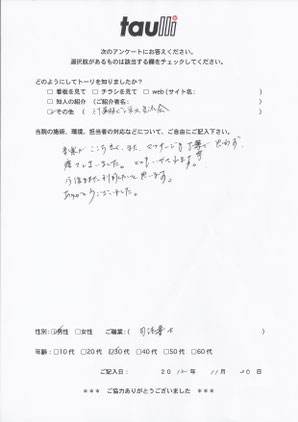 taulli
次のアンケートにお答えください。
選択肢があるものは該当する欄をチェックしてください。
どのようにしてトーリを知りましたか?
□看板を見て □チラシを見て □web(サイト名: )
□知人の紹介(ご紹介者名: )
☑その他( 交流会 )
当院の施術、環境、担当者の対応などについて、ご自由にご記入下さい。
音楽がここちよく、また、マッサージも丁寧で思わず
寝てしまいました。
今後もまた利用したいと思います。
ありがとうございました。
性別:☑男性 □女性 ご職業:( 司法書士 )
年齢:□10代 □20代 ☑30代 □40代 □50代 □60代
ご記入日: 2012年 11月 20日
*** ご協力ありがとうございました ***